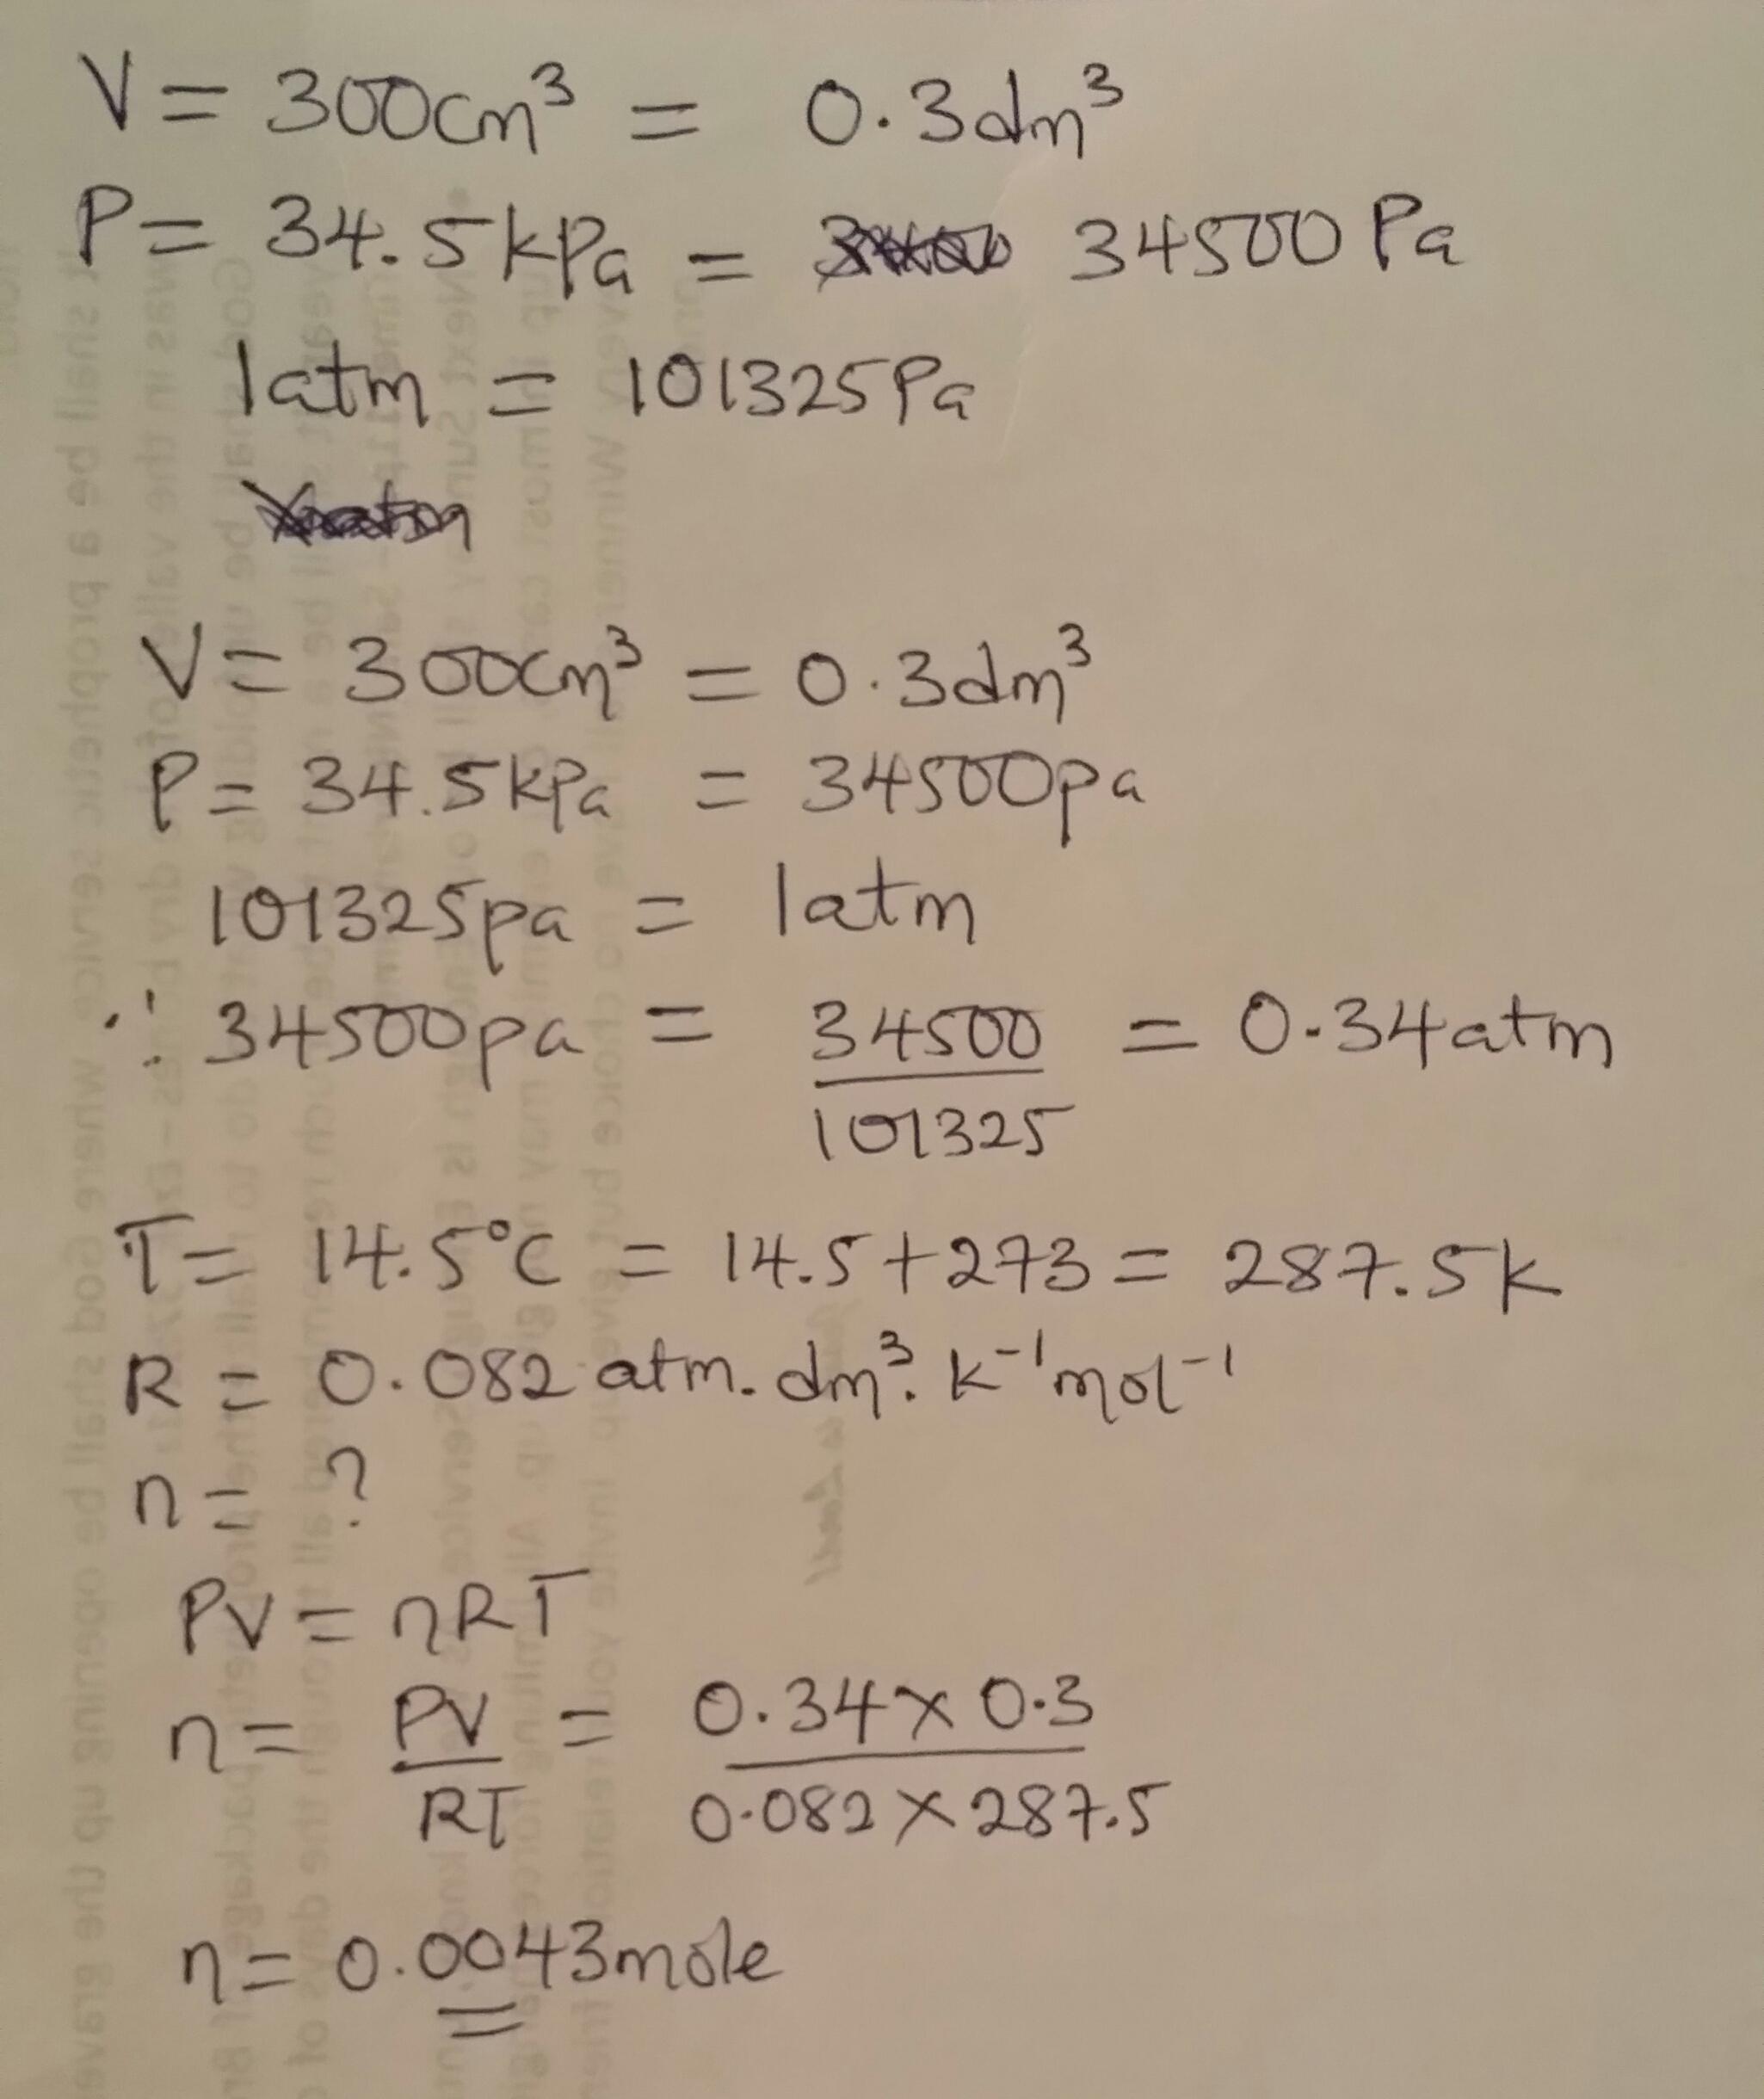 V = 300cm³ = 0.3dm³
P = 34.5kPa = 34500 Pa
1atm = 101325Pa
V = 300cm³ = 0.3dm³
P = 34.5kPa = 34500pa
101325pa = 1atm
∴ 34500pa = 34500/101325 = 0.34atm
T = 14.5°C = 14.5+273 = 287.5k
R = 0.082 atm. dm³. k⁻¹mol⁻¹
n = ?
PV = nRT
n = PV/RT = 0.34×0.3/0.082×287.5
n = 0.0043mole